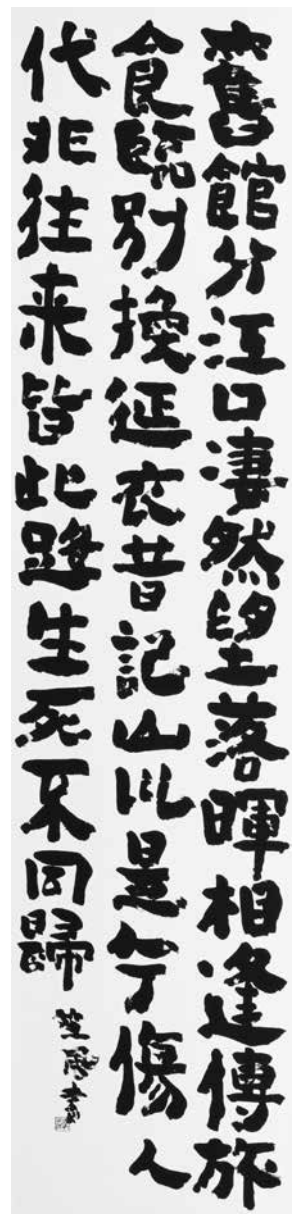 舊館分江口淒然望落暉相逢傳旅
食臨別換征衣昔記山川是今傷人
代非往来皆此路生死不同歸